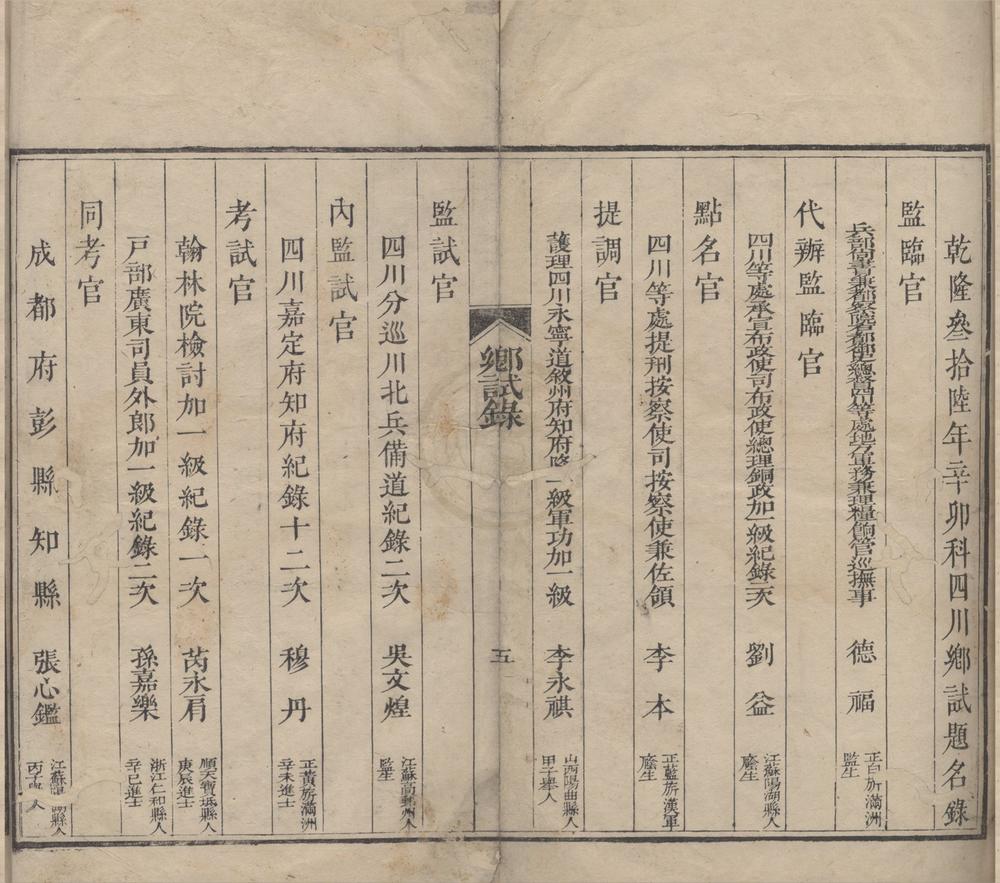 乾隆叁拾陸年辛卯科四川鄉試題名錄
監臨官
兵部尚書兼都察院右都御史總督四川等處地方軍務兼理糧餉管巡撫事 德福 正白旂滿洲監生
代辨監臨官
四川等處承宣布政使司布政使總理銅政加一級紀錄二次 劉益 江蘇陽湖縣人廕生
點名官
四川等處提刑按察使司按察使兼佐領 李本 正藍旂漢軍廕生
提調官
護理四川永寧道敘州府知府降一級軍功加一級 李永祺 山西陽曲縣人甲子舉人
鄉試錄 五
監試官
四川分巡川北兵備道紀錄二次 吳文煌 江蘇高郵州人監生
內監試官
四川嘉定府知府紀錄十二次 穆丹 正黃旂滿洲辛未進士
考試官
翰林院檢討加一級紀錄一次 芮永肩 順天寶坻縣人庚辰進士
戸部廣東司員外郎加一級紀錄二次 孫嘉樂 浙江仁和縣人辛巳進士
同考官
成都府彭縣知縣 張心鑑 江蘇縣人丙子人